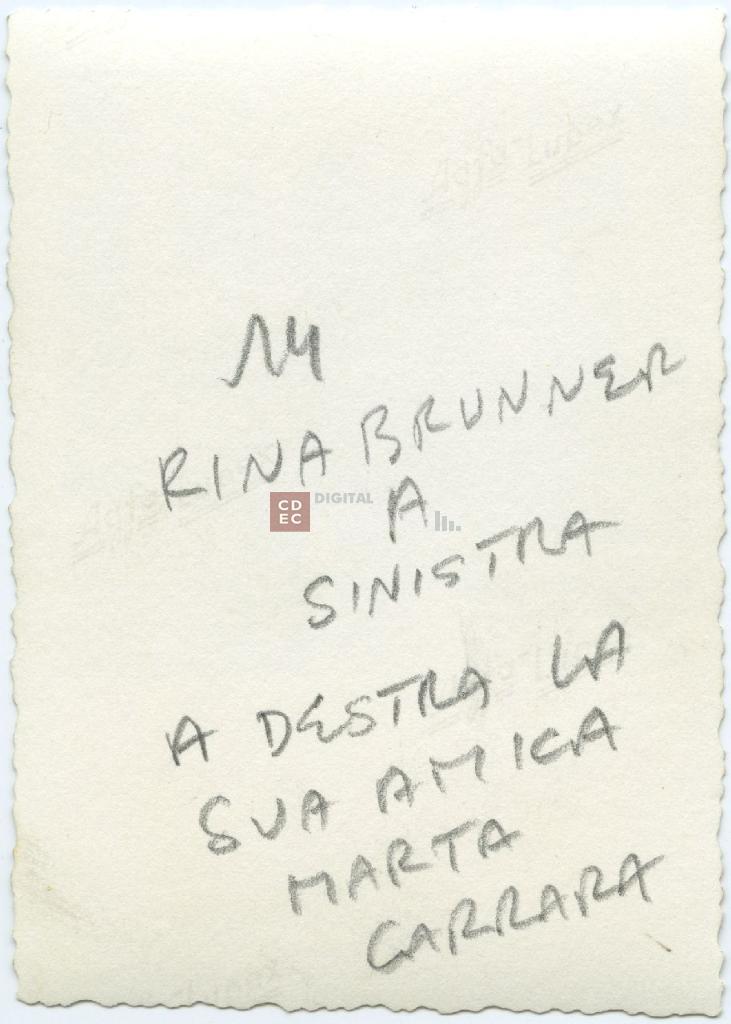 14
RINA BRUNNER
A
SINISTRA
A DESTRA LA
SUA AMICA
MARTA
CARRARA
CDEC DIGITAL
Agfa-Lupex